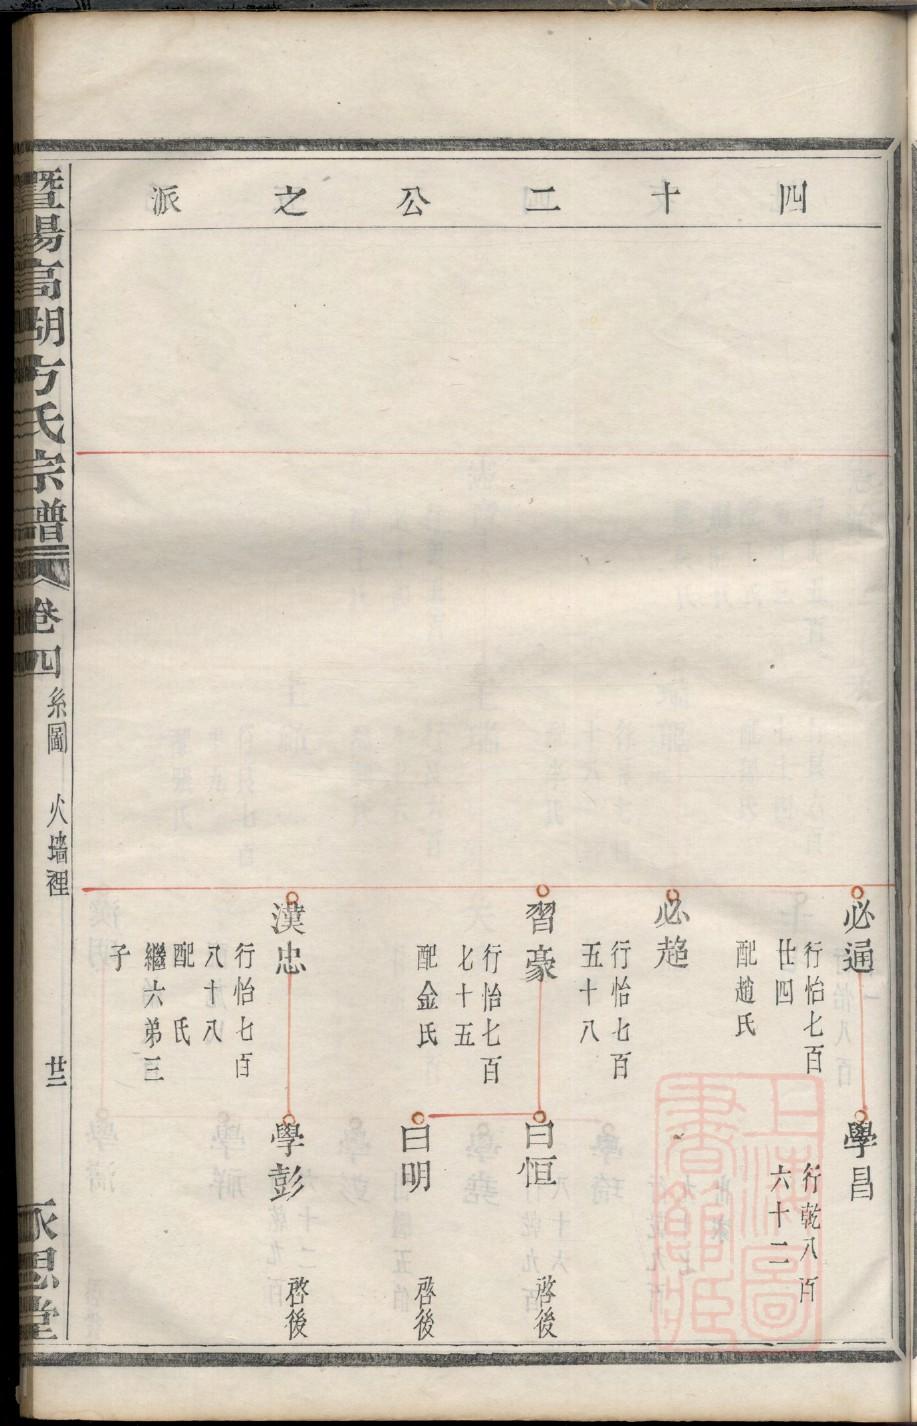 四十二公之派
必通
行怡七百
廿四
配趙氏
學昌
行乾八百
六十二
必趋
行怡七百
五十八
習豪
行怡七百
七十五
配金氏
曰恒
啓後
曰明
啓後
漢忠
行怡七百
八十八
配 氏
繼六弟三
子
學彭
啓後
暨陽高湖方氏宗譜 卷四 糸圖 火墙裡 廿三 永思堂